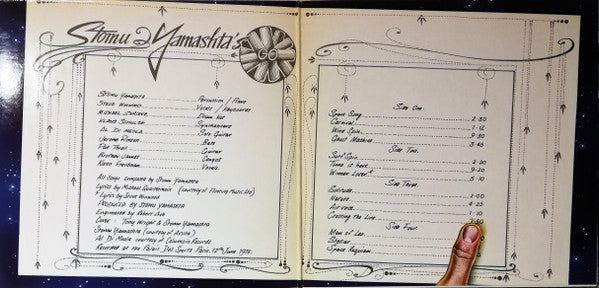 Stomu Yamashta's
GO
Stomu Yamashta Percussion / Piano
Steve Winwood Vocals / Keyboards
Michael Shrieve Drum Kit
Klaus Schulze Synthesizers
Al Di Meola Solo Guitar
Jerome Rimson Bass
Pat Thrall Guitar
Brother James Congas
Karen Friedman Vocals
All songs composed by Stomu Yamashta
Lyrics by Michael Quartermain (courtesy of Floating Music Ltd)
* Lyrics by Steve Winwood
Produced by Stomu Yamashta
Engineered by Robert Ash
Cover: Tony Wright & Stomu Yamashta
Stomu Yamashta (courtesy of Arista)
Al Di Meola courtesy of Columbia Records
Recorded at the Palais Des Sports Paris 12th June 1976.
Side One.
Space Song 2.30
Carnival 1.12
Wind Spin 9.30
Ghost Machine 3.45
Side Two.
Surf Spin 2.30
Time is here 9.20
Winner Loser* 5.10
Side Three.
Solitude 2.00
Nature 4.23
Air voice 1.10
Crossing the Line
Side Four.
Man of Leo
Stellar
Space Requiem